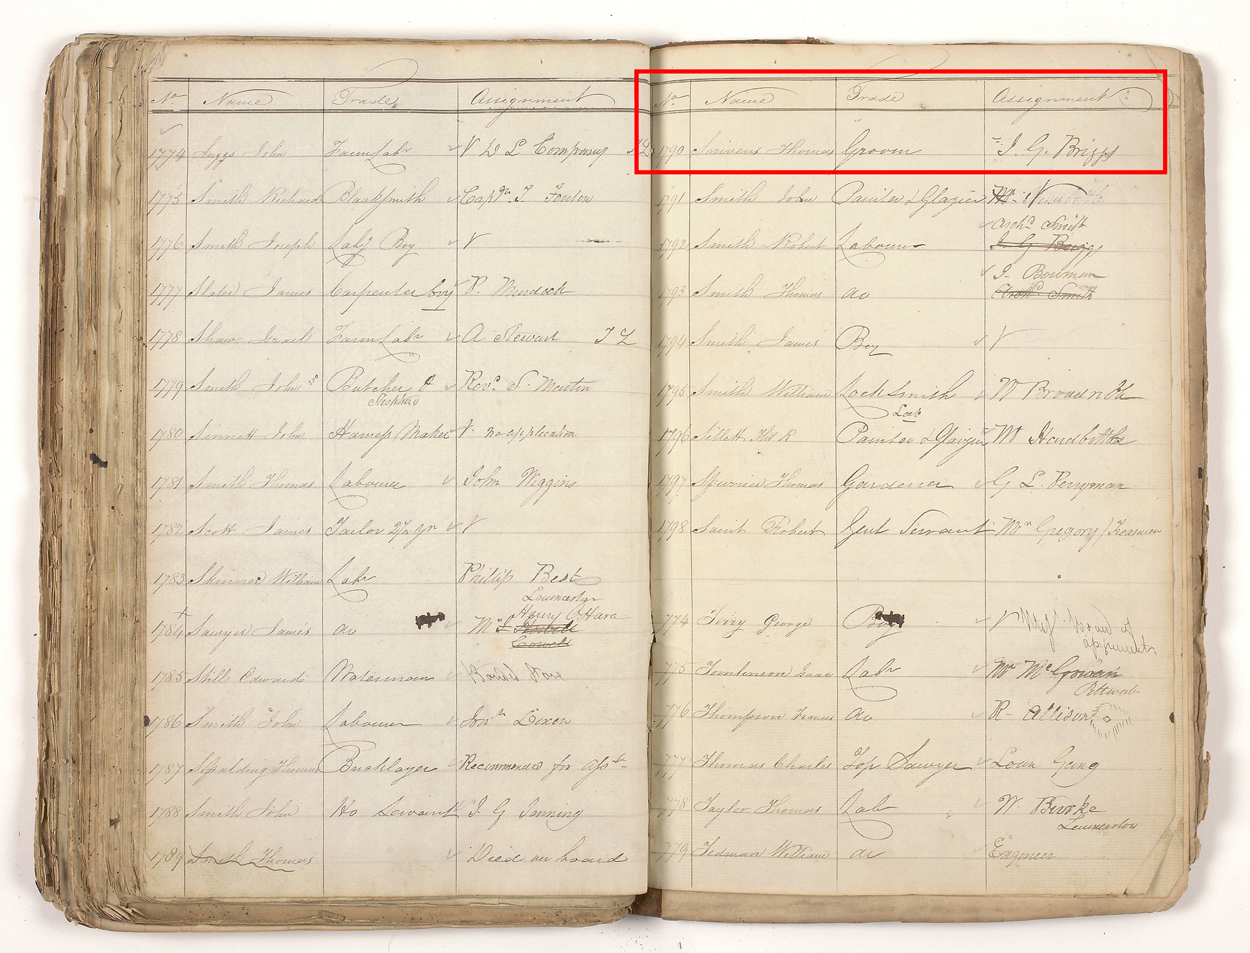 No. Name Trade Assignment
1774 Suggs John Farm Labr V D L Company
1775 Smith Richard Blacksmith Captn. T Fenton
1776 Smith Joseph Labg Boy V
1777 Slater James Carpenter boy P. Murdoch
1778 Shaw Israel Farm Labr A Stewart T L
1779 Smith John Butcher & Revd
Shepherd
1780 Sinnett John Harness Maker V no application
1781 Smith Thomas Labourer John Wiggins
1782 Scott James Tailor V
1783 Skinner William Labr Phillip Best
Launceston
Henry O'Hara
1784 Sawyer James do Mr
1785 Still Edward Waterman
1786 Smith John Labourer Dixon
1787 Spalding Thomas Bricklayer Recommended for
1788 Smith John Ho Servant J. G Janning
1789 Smith Thomas Died on board
No. Name Trade Assignment
1790 Scrivens Thomas Groom J. G. Briggs
1791 Smith John Painter & Glazier Mr
Archd Smith
1792 Smith Robert Labourer J G Briggs
J. Bowman
1793 Smith Thomas do Archd Smith
1794 Smith James Boy V
1795 Smith William Locksmith W Broadribb
Lock
1796 Painter & Glazier Mr
1797 Thomas Gardener G L Perryman
1798 Saint Robert Gent Servant Mr Gregory / Treasurer
774 Terry George Boy V
775 Tomlinson Isaac Labr Mr McGowan
776 Thompson Francis do R Allison
777 Thomas Charles Top Sawyer Loan Gang
778 Taylor Thomas Labr W. Burke
Launceston
779 Tedman William do Engineer